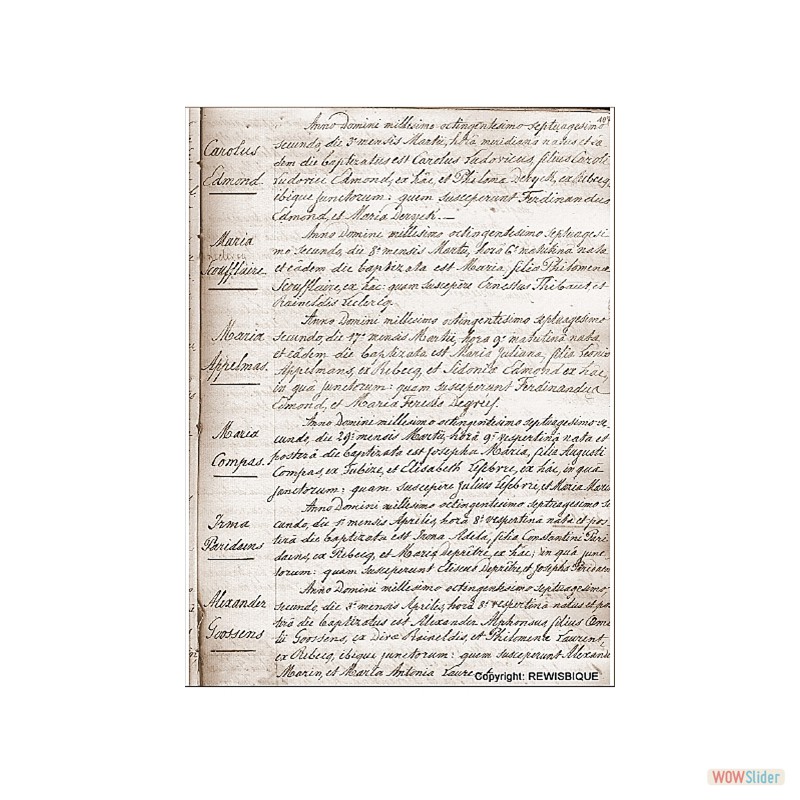 Anno Domini millesimo octingentesimo septuagesimo
Carolus
Edmond.
secundo, die 3ª mensis Martii, horâ meridiana natus et eâ
dem die baptizatus est Carolus Ludovicus, filius Caroli
Ludovici Edmond, ex hâc, et Philoma Derych, ex Rebecq,
ibique junctorum: quem susceperunt Ferdinandus
Edmond, et Maria Derych. —
Anno Domini millesimo octingentesimo septuagesi-
Maria
Scoufflaire.
mo secundo, die 8ª mensis Martii, horâ 6ª matutinâ nata
et eâdem die baptizata est Maria, filia Philomena
Scoufflaire, ex hâc: quam suscepere Ernestus Thibaut, et
Raineldis Leclercq.
Anno Domini millesimo octingentesimo septuagesimo
Maria
Appelmas.
secundo, die 17ª mensis Martii, horâ 9ª matutinâ nata
et eâdem die baptizata est Maria Juliana, filia
Appelmans, ex Rebecq, et Sidonia Edmond ex hâc,
in quâ junctorum: quam susceperunt Ferdinandus
Edmond, et Maria Degreef.
Anno Domini millesimo octingentesimo septuagesimo se-
Maria
Compas.
cundo, die 29ª mensis Martii, horâ 9ª vespertinâ nata et
posterâ die baptizata est Josepha Maria, filia Augusti
Compas, ex Tubize, et Elisabeth Lefebvre, ex hâc, in quâ
junctorum: quam suscepere Julius Lefebvre, et Maria
Anno Domini millesimo octingentesimo septuagesimo se-
Irma
Paridaens
cundo, die 1ª mensis Aprilis, horâ 8ª vespertinâ nata et pos-
terâ die baptizata est Irma Adela, filia Constantini Pari-
daens, ex Rebecq, et Maria Deprêtre, ex hâc; in quâ junc-
torum: quam susceperunt Deprêtre, et Josepha Paridaens
Anno Domini millesimo octingentesimo septuagesimo
Alexander
Goossens
secundo, die 3ª mensis Aprilis, horâ 8ª vespertinâ natus et pos-
terâ die baptizatus est Alexander Alphonsus, filius
Goossens, ex Divæ Raineldis, et Philomena Laurent,
ex Rebecq, ibique junctorum: quem susceperunt Alexander
Marin, et Maria Antonia Laurent
Copyright: REWISBIQUE
WOWSlider